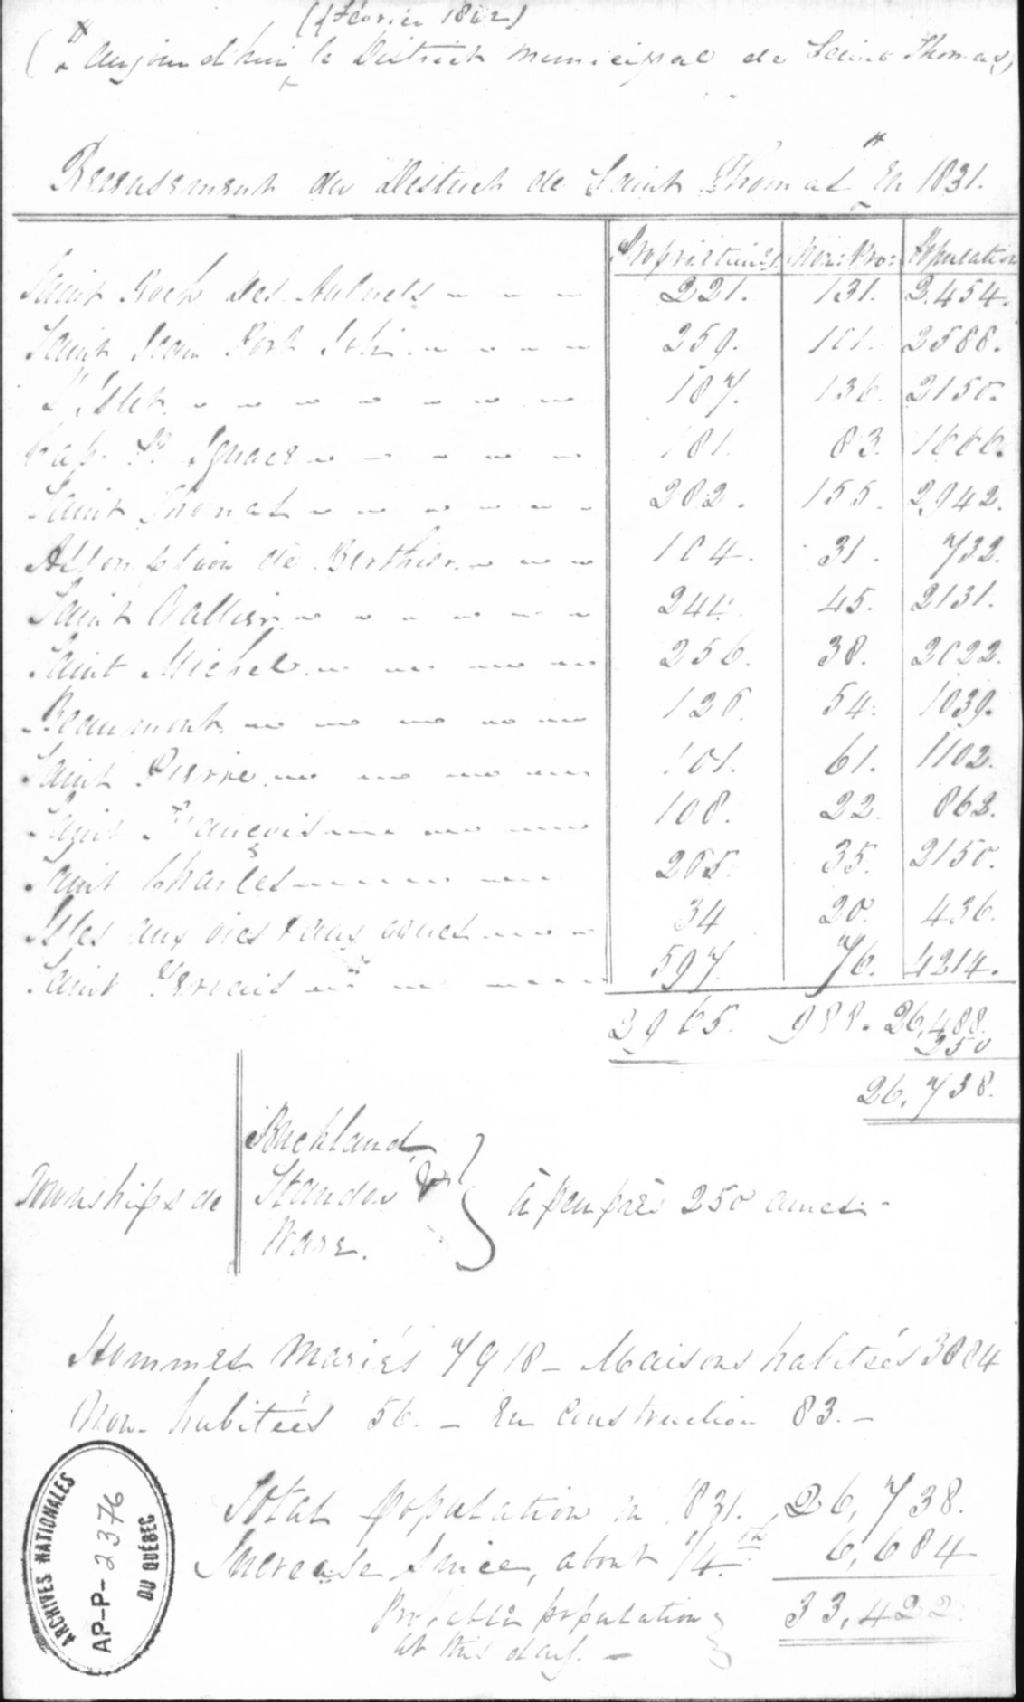 (Février 1842)
("Aujourd'hui le District Municipal de Saint Thomas)
Recensement du District de Saint Thomas" en 1831.
Propriétaires Non: Pro: Population
Saint Roch des Aulnets 221. 131. 2,454.
Saint Jean Port Joli 259. 101. 2588.
L'Islet 187. 136. 2150.
Cap St. Ignace 181. 83.
Saint Thomas 282. 155. 2942.
Assomption de Berthier 104. 31. 732.
Saint Vallier 244. 45. 2131.
Saint Michel 256. 38. 2022.
Beaumont 126. 54. 1039.
Saint Pierre 101. 61. 1102.
Saint François 108. 22. 863.
Saint Charles 265. 35. 2150.
Isles aux oies & aux grues 34 20. 436.
Saint Gervais 597. 76. 4214.
2965. 988. 26,488.
250
26,738.
Townships de
Buckland
Standon &
Ware.
à peu près 250 ames -
Hommes Mariés 7918 - Maisons habitées 3084
Non-habitées 56. - En Construction 83. -
Total population in 1831. 26,738.
Increase Since, about 1/4th. 6,684
Probable population 33,422
at this day. -
ARCHIVES NATIONALES
DU QUÉBEC
AP-P-2376